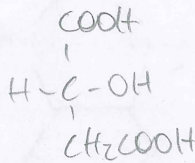 COOH
H-C-OH
CH₂COOH